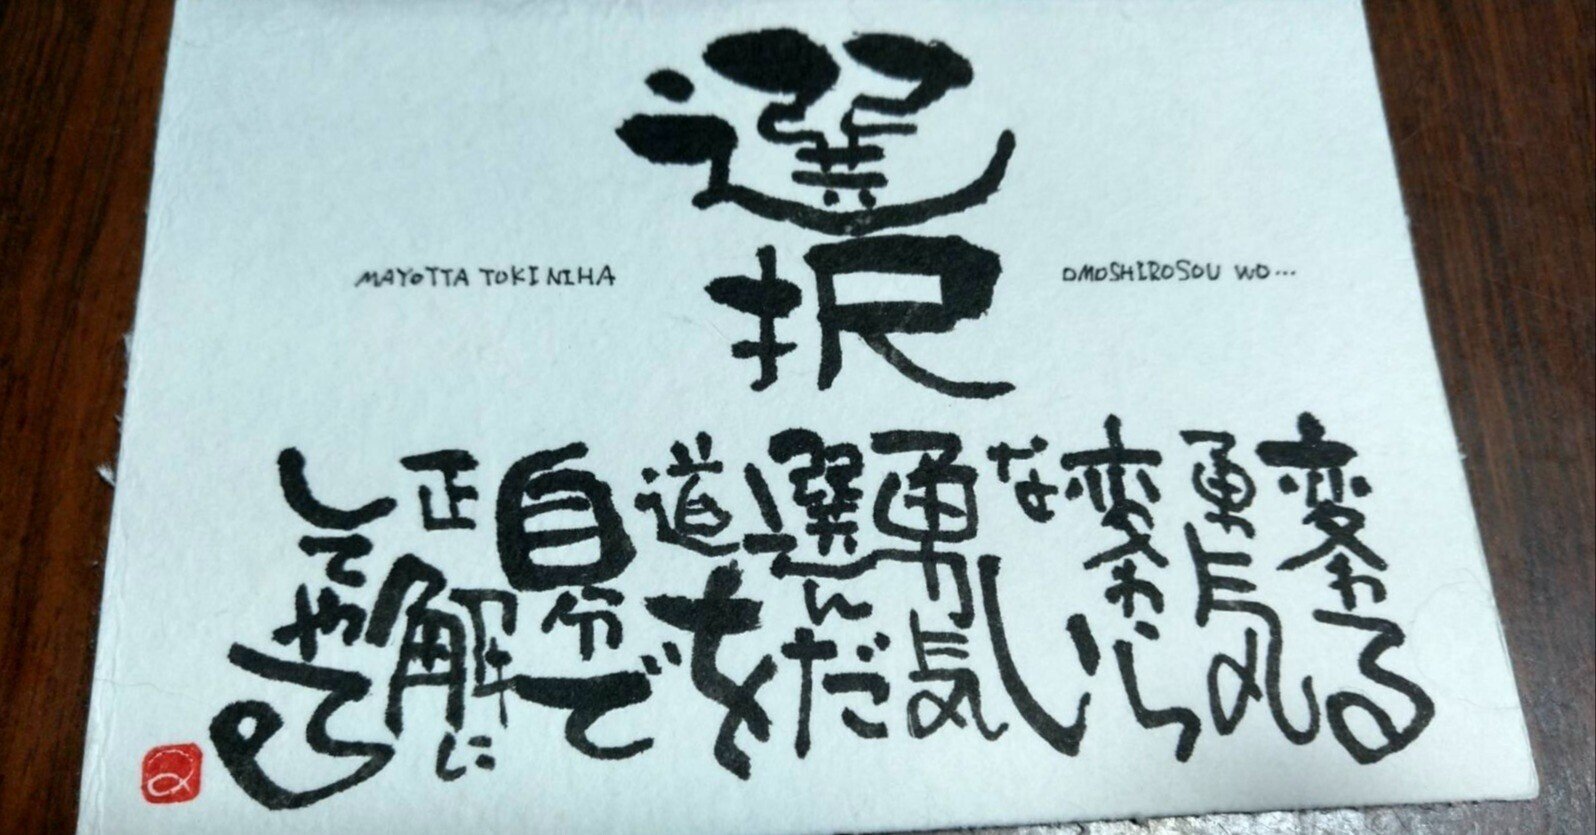 選択
MAYOTTA TOKI NIHA
OMOSHIROSOU WO…
変わる
勇気
変わら
ない
勇気
選んだ
道を
自分で
正解に
してやる